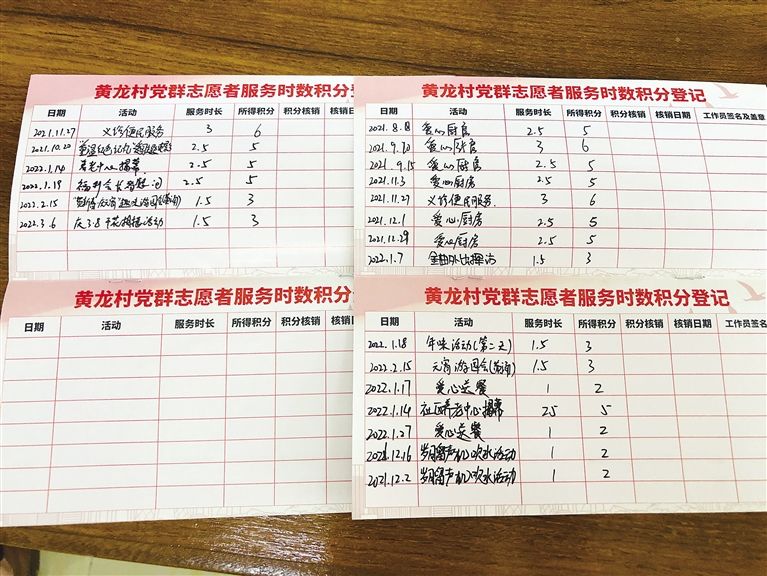 黄龙村党群志愿者服务时数积分登
日期 活动 服务时长 所得积分 积分核销 核销
2021.11.27 义诊便民服务 3 6
2021.10.20 2.5 5
2022.1.14 养老中心揭幕 2.5 5
2022.1.18 2.5 5
2022.2.15 1.5 3
2022.3.6 庆3.8 活动 1.5 3
黄龙村党群志愿者服务时数积分登记
日期 活动 服务时长 所得积分 积分核销 核销日期 工作员签名及盖章
2021.8.8 爱心厨房 2.5 5
2021.9.10 爱心厨房 3 6
2021.9.15 爱心厨房 2.5 5
2021.11.3 爱心厨房 2.5 5
2021.11.27 义诊便民服务. 3 6
2021.12.1 爱心厨房 2.5 5
2021.12.29 爱心厨房 2.5 5
2022.1.7 探访 1.5 3
黄龙村党群志愿者服务时数积分
日期 活动 服务时长 所得积分 积分核销 核销
黄龙村党群志愿者服务时数积分登记
日期 活动 服务时长 所得积分 积分核销 核销日期 工作员签
2022.1.18 年味活动(第二天) 1.5 3
2022.2.15 元宵游园会 1.5 3
2022.1.17 爱心送餐 1 2
2022.1.14 社区养老中心揭幕 2.5 5
2022.1.27 爱心送餐 1 2
2021.12.16 岁月留声机 活动 1 2
2021.12.2 岁月留声机 活动 1 2